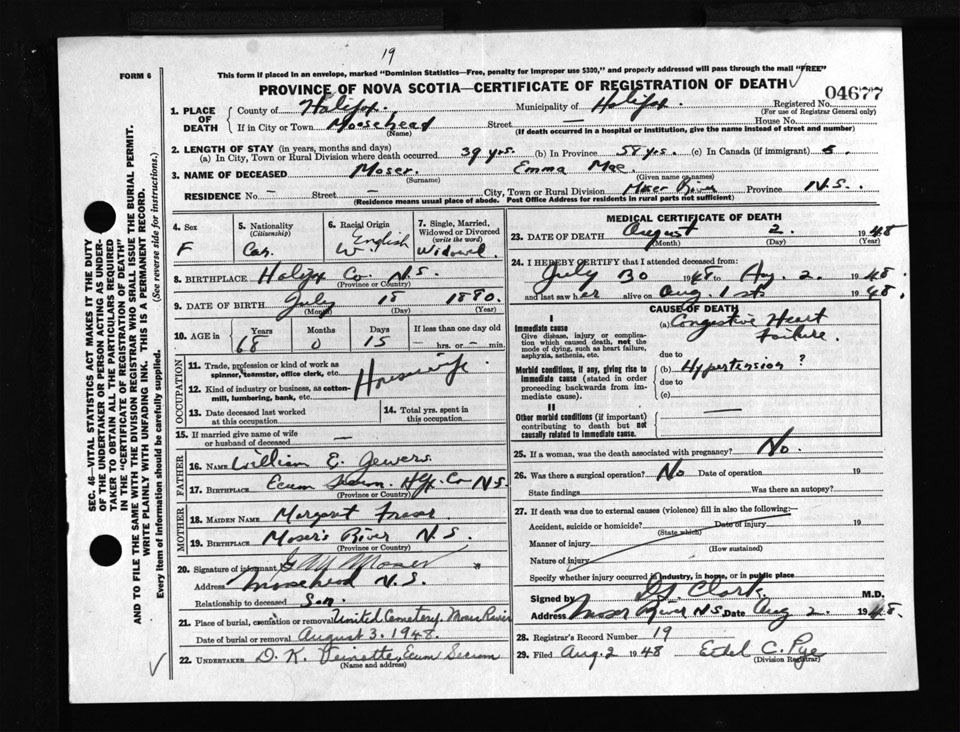 19
FORM 6
This form if placed in an envelope, marked "Dominion Statistics—Free, penalty for improper use $300," and properly addressed will pass through the mail "FREE"
PROVINCE OF NOVA SCOTIA—CERTIFICATE OF REGISTRATION OF DEATH
04677
1. PLACE OF DEATH County of Halifax Municipality of Halifax. Registered No.
(For use of Registrar General only)
If in City or Town Moosehead Street — House No.
(Name) (If death occurred in a hospital or institution, give the name instead of street and number)
2. LENGTH OF STAY (in years, months and days)
(a) In City, Town or Rural Division where death occurred 39 yrs. (b) In Province 58 yrs. (c) In Canada (if immigrant)
3. NAME OF DECEASED Moser. Emma Mae.
(Surname) (Given name or names)
RESIDENCE No — Street — City, Town or Rural Division Moser River Province N.S.
(Residence means usual place of abode. Post Office Address for residents in rural parts not sufficient)
4. Sex F
5. Nationality (Citizenship) Can.
6. Racial Origin English W.
7. Single, Married, Widowed or Divorced (write the word) Widowed
8. BIRTHPLACE Halifax Co. N.S.
(Province or Country)
9. DATE OF BIRTH July 18 1880.
(Month) (Day) (Year)
10. AGE in Years Months Days If less than one day old
68 0 15 — hrs. or — min.
OCCUPATION
11. Trade, profession or kind of work as spinner, teamster, office clerk, etc. Housewife
12. Kind of industry or business, as cotton-mill, lumbering, bank, etc.
13. Date deceased last worked at this occupation
14. Total yrs. spent in this occupation
15. If married give name of wife or husband of deceased —
FATHER
16. NAME William E. Jewers
17. BIRTHPLACE Ecum Secum Hfx. Co N.S.
(Province or Country)
MOTHER
18. MAIDEN NAME Margaret Fraser
19. BIRTHPLACE Moser's River N.S.
(Province or Country)
20. Signature of informant Moser
Address Moosehead N.S.
Relationship to deceased Son.
21. Place of burial, cremation or removal United Cemetery. Moser River
Date of burial or removal August 3. 1948.
22. UNDERTAKER D. K. Ecum Secum
(Name and address)
MEDICAL CERTIFICATE OF DEATH
23. DATE OF DEATH August 2. 1948
(Month) (Day) (Year)
24. I HEREBY CERTIFY that I attended deceased from:
July 30 1948 to Aug. 2. 1948.
and last saw her alive on Aug. 1st 1948.
CAUSE OF DEATH
I
Immediate cause (a) Congestive Heart Failure.
Give disease, injury or complication which caused death, not the mode of dying, such as heart failure, asphyxia, asthenia, etc.
due to
Morbid conditions, if any, giving rise to immediate cause (stated in order proceeding backwards from immediate cause). (b) Hypertension ?
due to
(c)
II
Other morbid conditions (if important) contributing to death but not causally related to immediate cause. —
25. If a woman, was the death associated with pregnancy? No.
26. Was there a surgical operation? No Date of operation 19
State findings Was there an autopsy?
27. If death was due to external causes (violence) fill in also the following:—
Accident, suicide or homicide? Date of injury 19
(State which)
Manner of injury
(How sustained)
Nature of injury
Specify whether injury occurred in industry, in home, or in public place
Signed by Clark M.D.
Address Moser River N.S. Date Aug 2. 1948.
28. Registrar's Record Number 19
29. Filed Aug. 2 1948 Ethel C. Pye
(Division Registrar)
SEC. 46—VITAL STATISTICS ACT MAKES IT THE DUTY OF THE UNDERTAKER OR PERSON ACTING AS UNDERTAKER TO OBTAIN ALL THE PARTICULARS REQUIRED IN THE "CERTIFICATE OF REGISTRATION OF DEATH" AND TO FILE THE SAME WITH THE DIVISION REGISTRAR WHO SHALL ISSUE THE BURIAL PERMIT.
WRITE PLAINLY WITH UNFADING INK. THIS IS A PERMANENT RECORD.
Every item of information should be carefully supplied. (See reverse side for instructions.)